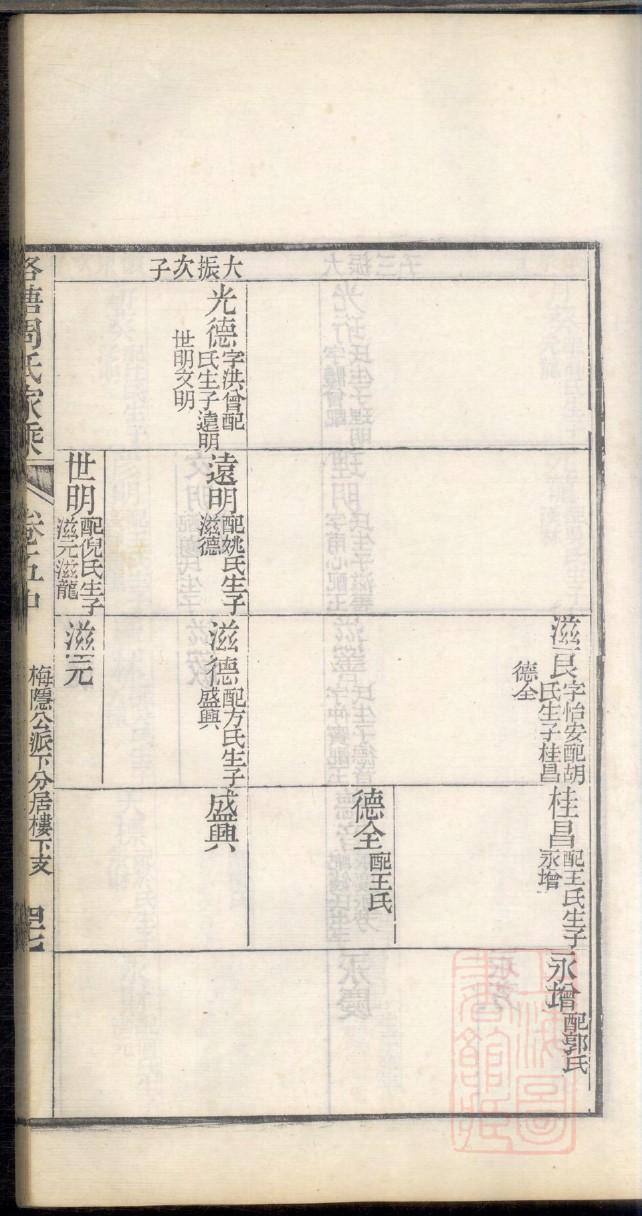 大振次子
光德
字洪曾配
氏生子遠明
世明文明
遠明
配姚氏生子
滋德
世明
配倪氏生子
滋元滋龍
滋良
字怡安配胡
氏生子桂昌
德全
滋德
配方氏生子
盛興
滋元
桂昌
配王氏生子
永增
德全
配王氏
盛興
永增
配郭氏
周氏家乘
卷五中
梅隱公派下分居樓下支